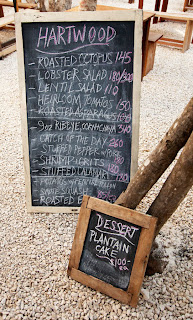 HARTWOOD
ROASTED OCTOPUS 145
LOBSTER SALAD 180/300
LENTIL SALAD 110
HEIRLOOM TOMATOS 150
ROASTED
9oz RIBEYE, CORN+CHAYA 340
CATCH OF THE DAY 260
STUFFED PEPPER
SHRIMP+GRITS
STUFFED CALAMARI
SQUASH
ROASTED
DESSERT
PLANTAIN
CAKE
$100